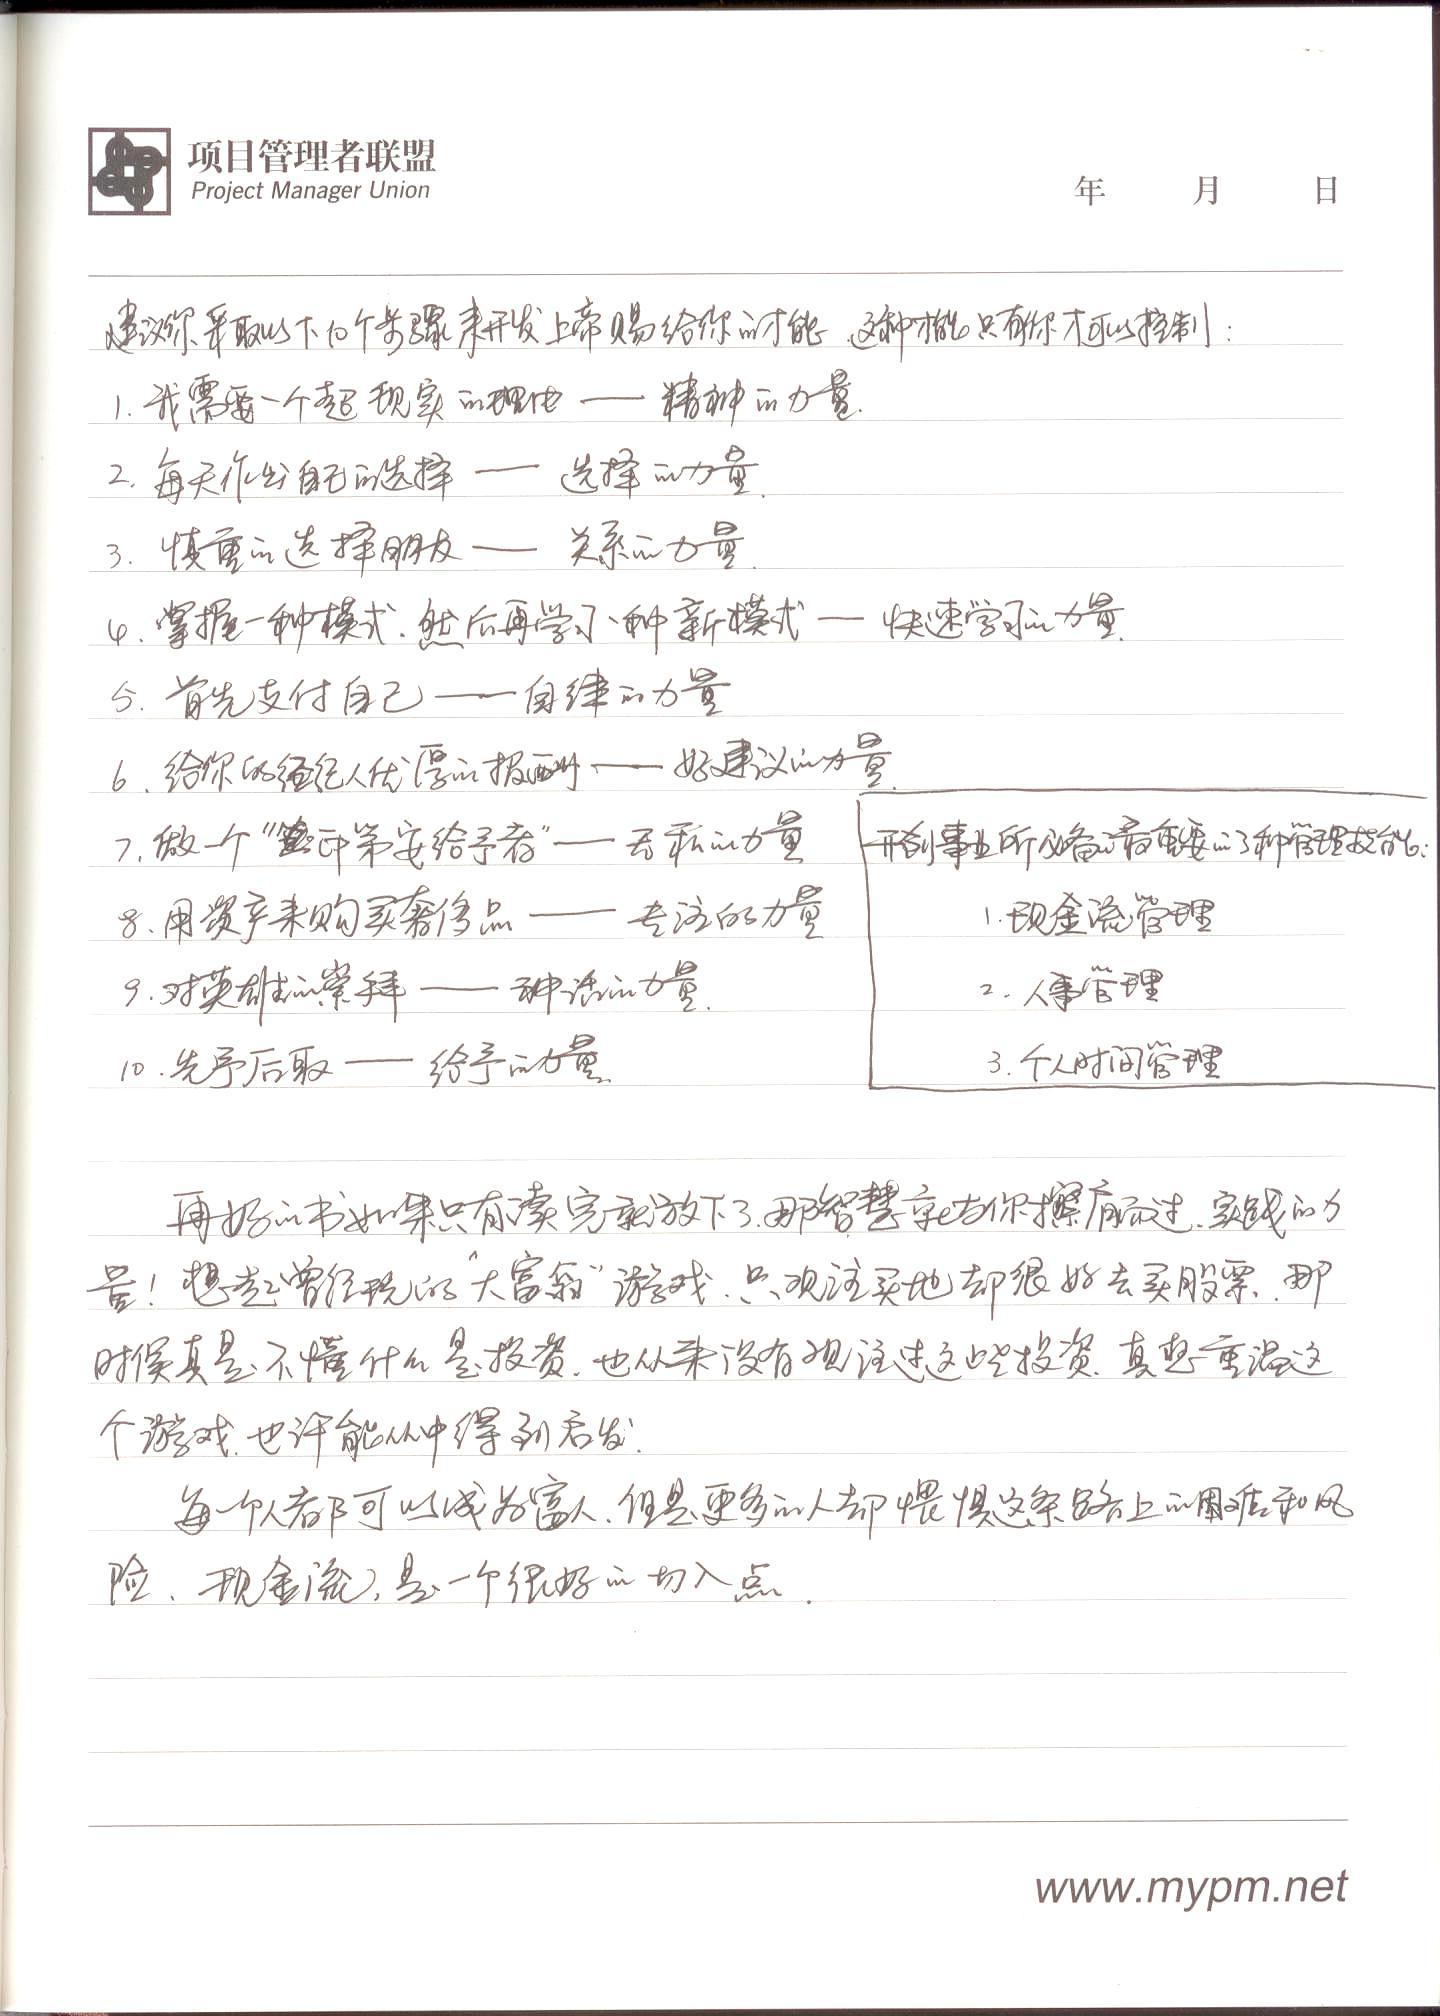 项目管理者联盟
Project Manager Union
年 月 日
建议你采取以下10个步骤来开发上帝赐给你的才能,这种才能只有你才可以控制:
1. 我需要一个超现实的理由 —— 精神的力量.
2. 每天作出自己的选择 —— 选择的力量.
3. 慎重的选择朋友 —— 关系的力量.
4. 掌握一种模式.然后再学习一种新模式 —— 快速学习的力量.
5. 首先支付自己 —— 自律的力量
6. 给你的经纪人优厚的报酬 —— 好建议的力量.
7. 做一个“印第安给予者” —— 无私的力量
8. 用资产来购买奢侈品 —— 专注的力量
9. 对英雄的崇拜 —— 神话的力量.
10. 先予后取 —— 给予的力量.
开创事业所必备的最重要的3种管理技能:
1. 现金流管理
2. 人事管理
3. 个人时间管理
再好的书如果只有读完就放下了.那智慧就与你擦肩而过.实践的力
量!想起曾经玩的“大富翁”游戏.只观注买地却很好去买股票.那
时候真是不懂什么是投资.也从来没有观注过这些投资.真想重温这
个游戏.也许能从中得到启发.
每一个人都可以成为富人.但是更多的人却惧惧这条路上的困难和风
险.现金流,是一个很好的切入点.
www.mypm.net